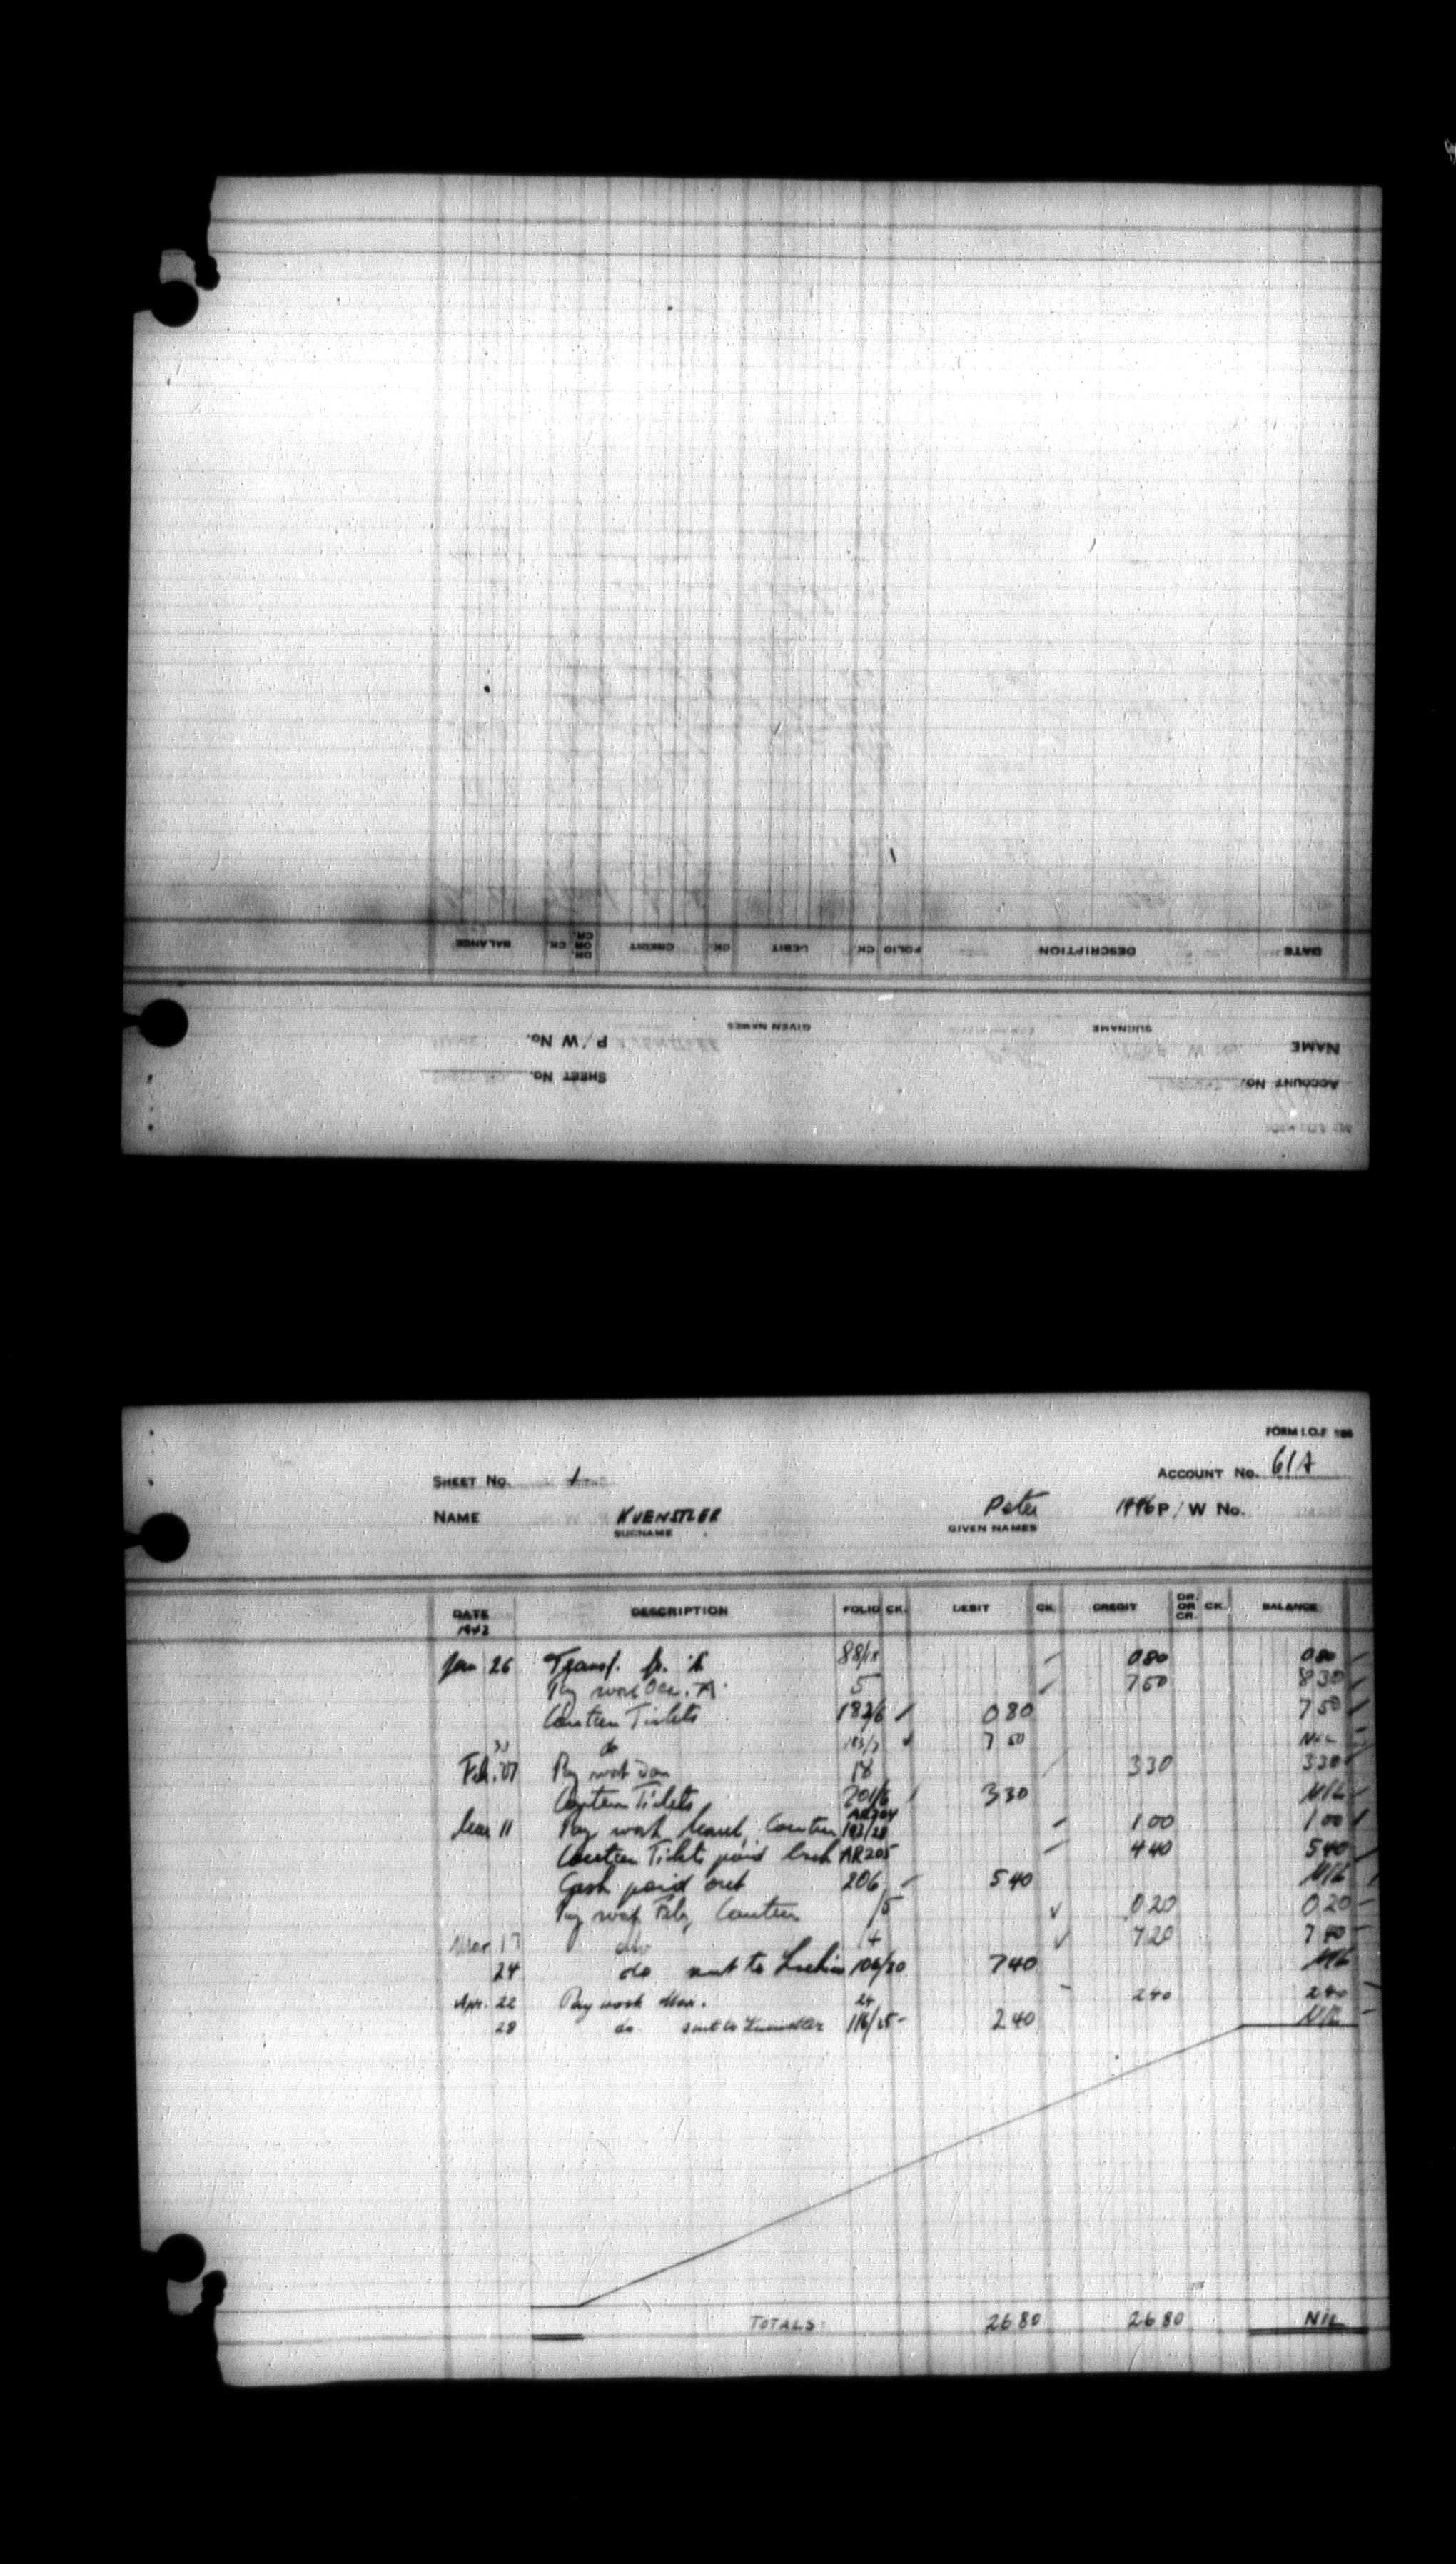 FORM I.O.F. 186
ACCOUNT No.
SHEET No.
NAME
P/W No.
SURNAME
GIVEN NAMES
DATE DESCRIPTION FOLIO CK. DEBIT CK. CREDIT DR. OR CR. CK. BALANCE
FORM I.O.F. 186
SHEET No. 1 ACCOUNT No. 61A
NAME KUENSTLER Peter P/W No.
SURNAME GIVEN NAMES
DATE DESCRIPTION FOLIO CK. DEBIT CK. CREDIT DR. OR CR. CK. BALANCE
1942
Jan 26 Transf. fr. 88/18 0 80 0 80
Pay work Dec. A 5 7 50 8 30
Canteen Tickets 182/6 0 80 7 50
30 do 7 50 NIL
Feb. 07 Pay work Jan 18 3 30 3 30
Canteen Tickets 201/6 3 30 Nil
11 Pay work Canteen AR204 1 00 1 00
Canteen Tickets paid back AR205 4 40 5 40
Cash paid out 206 5 40 Nil
Pay work Feb, Canteen /5 0 20 0 20
Mar 17 do 7 20 7 40
24 do sent to 106/30 7 40 Nil
Apr. 22 Pay work Mar. 24 2 40 2 40
28 do sent to Kuenstler 116/25 2 40 Nil
TOTALS 26 80 26 80 NIL